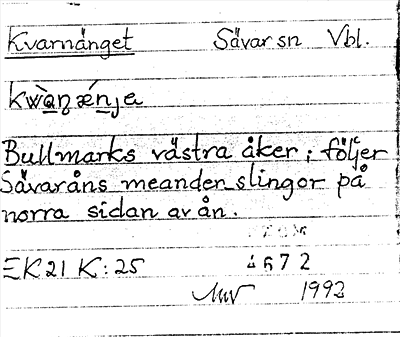 Kvarnänget Sävar sn Vbl.
kwàṇǽnja
Bullmarks västra åker; följer
Sävaråns meander slingor på
norra sidan av ån.
EK 21 K: 25 4672
1992